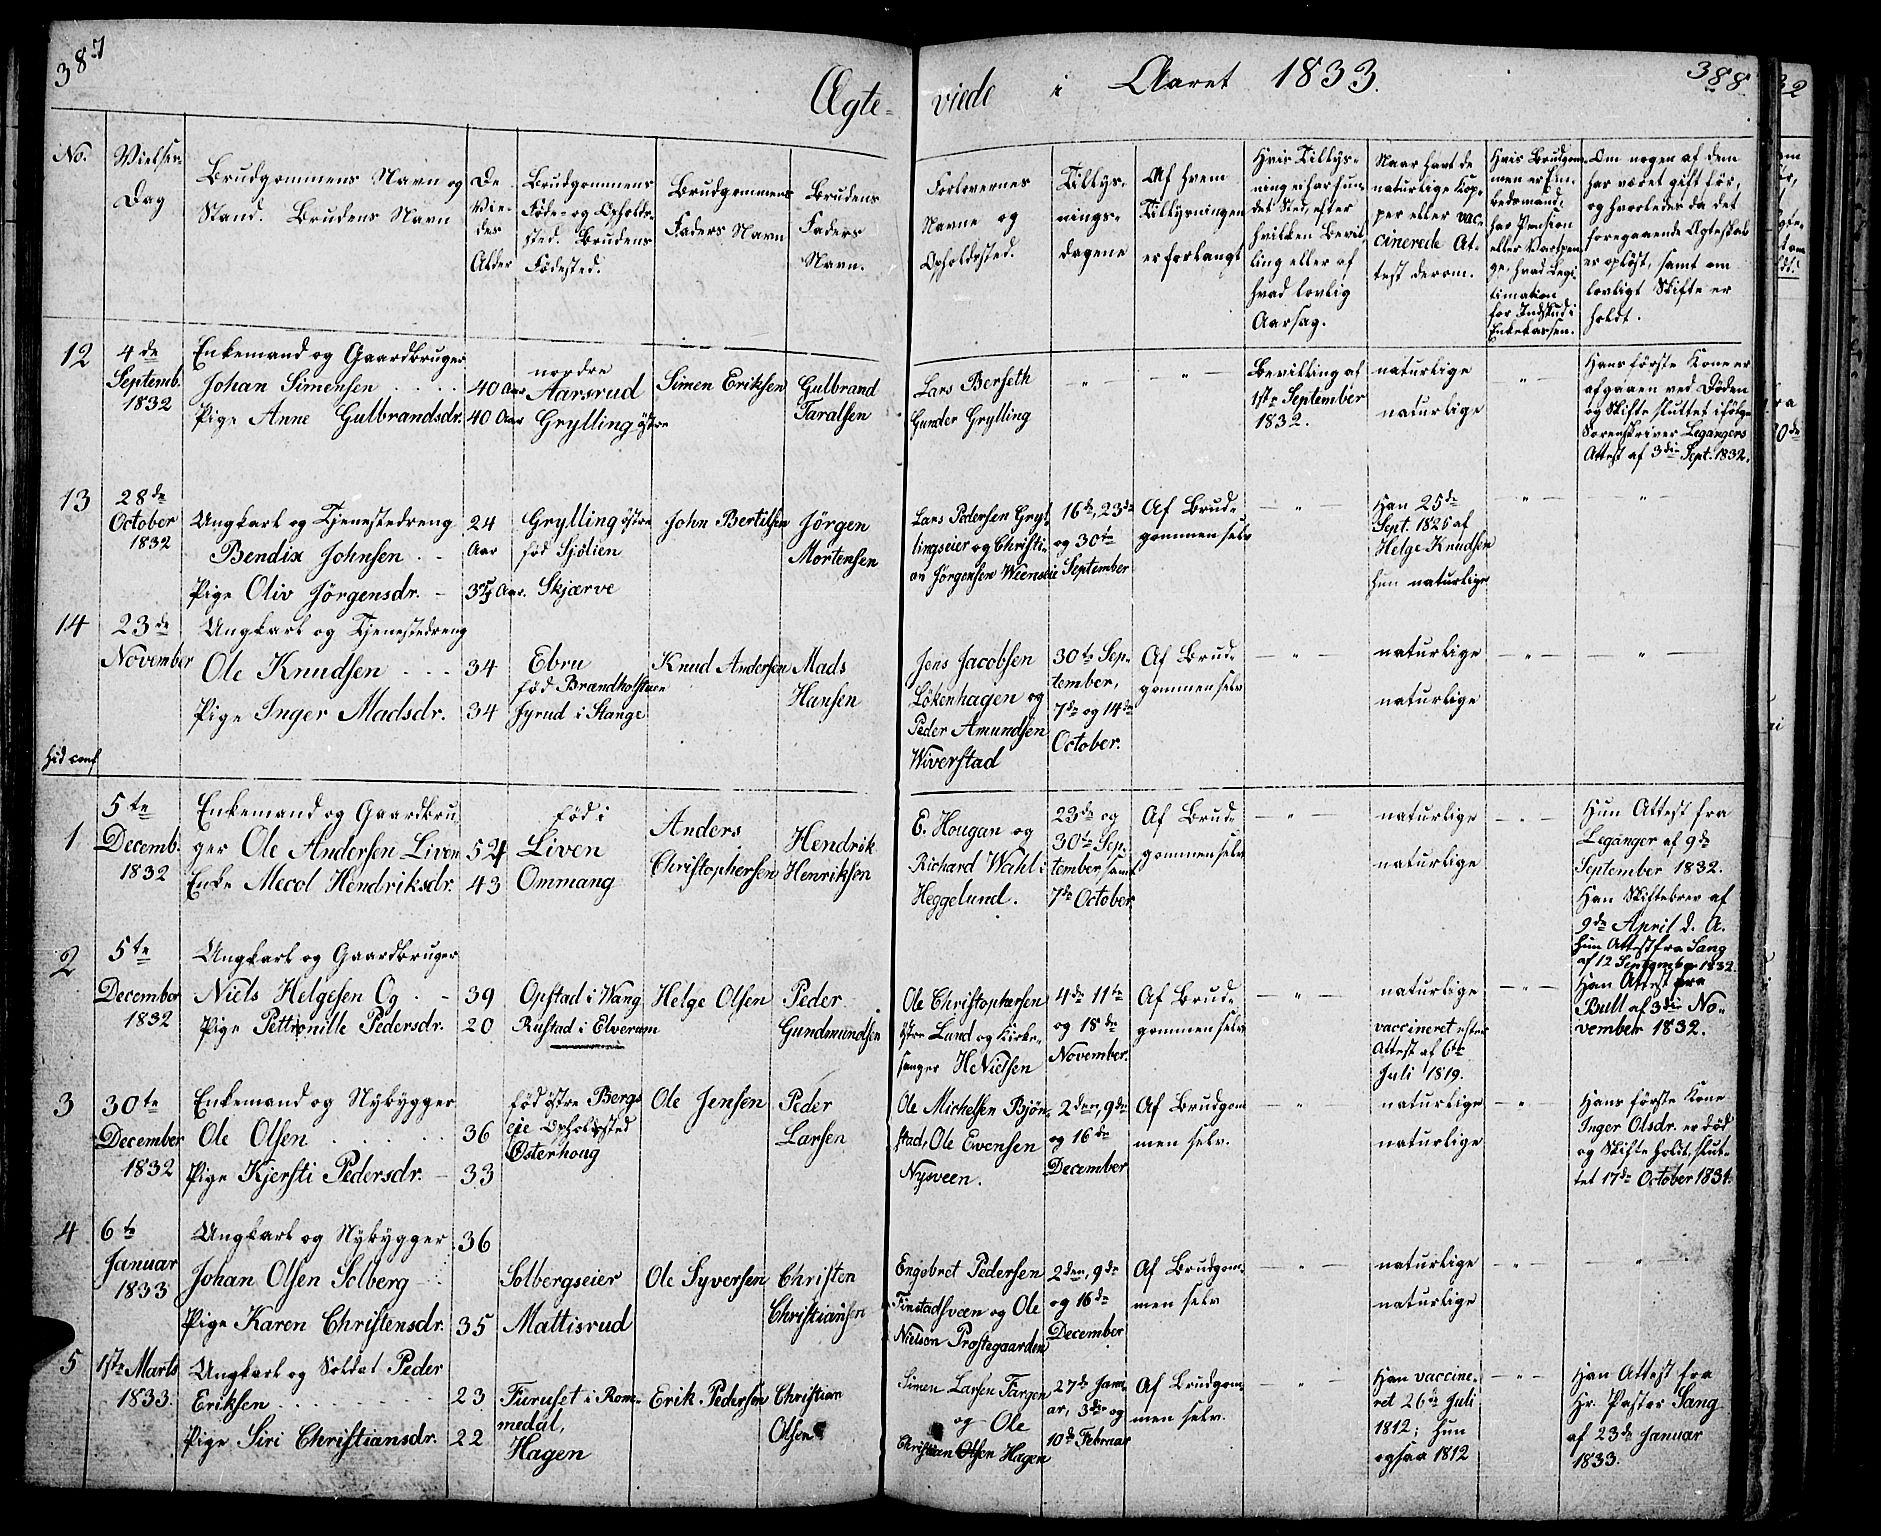 387
Ægte-
viede i Aaret 1833.
388
No.
Vielses-
Dag
Brudgommens Navn og
Stand. Brudens Navn
De
Vie-
des
Alder
Brudgommens
Føde- og Opholds-
sted. Brudens
Fødested.
Brudgommens
Faders Navn
Brudens
Faders
Navn.
Forlovernes
Navne og
Opholdssted.
Tillys-
nings-
dagene
Af hvem
Tillysningen
er forlangt
Hvis Tillys-
ning ei har fun-
det Sted, efter
hvilken Bevil-
ling eller af
hvad lovlig
Aarsag.
Naar havt de
naturlige Kop-
per eller vac-
cinerede At-
test derom.
Hvis Brudgom-
men er Em-
bedsmand,
har Pension
eller Vartpen-
ge, hvad Legi-
timation
for Indskud i
Enkekassen.
Om nogen af dem
har været gift før,
og hvorledes da det
foregaaende Ægteskab
er opløst, samt om
lovligt Skifte er
holdt.
12
4de
Septemb.
1832
Enkemand og Gaardbruger
Johan Simensen . . . .
Pige Anne Gulbrandsdr.
40 Aar
40 Aar
nordre
Aarsrud
Grylling østre
Simen Eriksen
Gulbrand
Taralsen
Lars Berseth
Gunder Grylling
— „ —
— „ —
Bevilling af
1ste September
1832.
naturlige
naturlige
— „ —
Hans første Kone er
afgaaen ved Døden
og Skifte sluttet ifølge
Sorenskriver Legangers
Attest af 3die Sept. 1832.
13
28de
October
1832
Ungkarl og Tjenestedreng
Bendix Johnsen . —
Pige Oliv Jörgensdr. —
24
Aar
35 Aar.
Grylling østre
fød Sjölien
Skjærve
John Bertelsen
Jörgen
Mortensen
Lars Pedersen Gryl-
lingseier og Christi-
an Jörgensen Weenseie
16de, 23de
og 30te
September
Af Brud-
gommen selv
— „ —
Han 25de
Sept. 1825 af
Helge Knudsen
hun naturlige
— „ —
— „ —
14
23de
November
Ungkarl og Tjenestedreng
Ole Knudsen . . .
Pige Inger Madsdr.
34
34
Ebru
fød Brændholstuen
Fyrud i Stange
Knud Andersen
Mads
Hansen
Jens Jacobsen
Lökenhagen og
Peder Amundsen
Wiverstad
30te Sep-
tember,
7de og 14de
October.
Af Brud-
gommen selv
— „ —
naturlige
naturlige
— „ —
— „ —
1
5te
Decemb.
1832
Enkemand og Gaardbru-
ger Ole Andersen Liven
Enke Mecol Hendriksdr.
52
43
fød i
Liven
Ommang
Anders
Christophersen
Hendrik
Henriksen
E. Hougan og
Richard Wahl i
Heggelund.
23de og
30te Sep-
tember, samt
7de October
Af Brud-
gommen selv
— „ —
naturlige
naturlige
— „ —
Hun Attest fra
Leganger af 9de
September 1832.
Han Skiftebrev af
9de April d. A.
2
5te
December
1832
Ungkarl og Gaardbruger
Niels Helgesen Og . —
Pige Pettronille Pedersdr.
39
20
Opstad i Wang
Rustad i Elverum
Helge Olsen
Peder
Gundmundsen
Ole Christophersen
østre Lund og Kirke-
sanger HeNielsen
4de 11te
og 18de
November.
Af Brud-
gommen selv
— „ —
naturlige
vaccineret efter
Attest af 6te
Juli 1819.
— „ —
hun Attest fra Sang
af 12 September 1832
Han Attest fra
Bull af 3die No-
vember 1832.
3
30te
December
1832
Enkemand og Nybygger
Ole Olsen . . . . .
Pige Kjersti Pedersdr. —
36
33
fød østre Bergs
eje Opholdssted
Österhoug
Ole Jensen
Peder
Larsen
Ole Michelsen Bjøn-
stad, Ole Evensen
Nysveen.
2den, 9de
og 16de
December
Af Brudgom-
men selv.
„
naturlige
naturlige
— „ —
Hans første Kone
Inger Olsdr. er død
og Skifte holdt, slut-
tet 17de October 1831.
4
6te
Januar
1833
Ungkarl og Nybygger
Johan Olsen Solberg
Pige Karen Christensdr.
36
35
Solbergseier
Mattisrud
Ole Syversen
Christen
Christiansen
Engebret Pedersen
Finstadsveen og Ole
Nielsen Prostegaarden
2den, 9de
og 16de
December
Af Brudgom-
men selv
— „ —
naturlige
naturlige
— „ —
— „ —
5
1ste Marts
1833.
Ungkarl og Soldat Peder
Eriksen . . . . . . .
Pige Siri Christiansdr.
23
22
Furuset i Rom-
medal,
Hagen
Erik Pedersen
Christian
Olsen
Simen Larsen Fargen
og Ole
Christian Olsen Hagen
27de Janu-
ar, 3die og
10de Februar
Af Brudgom-
men selv.
— „ —
Han vaccine-
ret 26de Juli
1812; hun
ogsaa 1812
— „ —
Han Attest fra
Hr. Pastor Sang
af 23de Januar
1833.